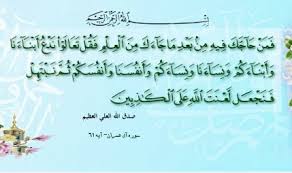 بسم الله الرحمن الرحيم
فَمَنْ حَاجَّكَ فِيهِ مِنْ بَعْدِ مَا جَاءَكَ مِنَ الْعِلْمِ فَقُلْ تَعَالَوْا نَدْعُ أَبْنَاءَنَا
وَأَبْنَاءَكُمْ وَنِسَاءَنَا وَنِسَاءَكُمْ وَأَنْفُسَنَا وَأَنْفُسَكُمْ ثُمَّ نَبْتَهِلْ
فَنَجْعَلْ لَعْنَتَ اللَّهِ عَلَى الْكَاذِبِينَ
صدق الله العلي العظيم
سوره آل عمران - آیه ۶۱